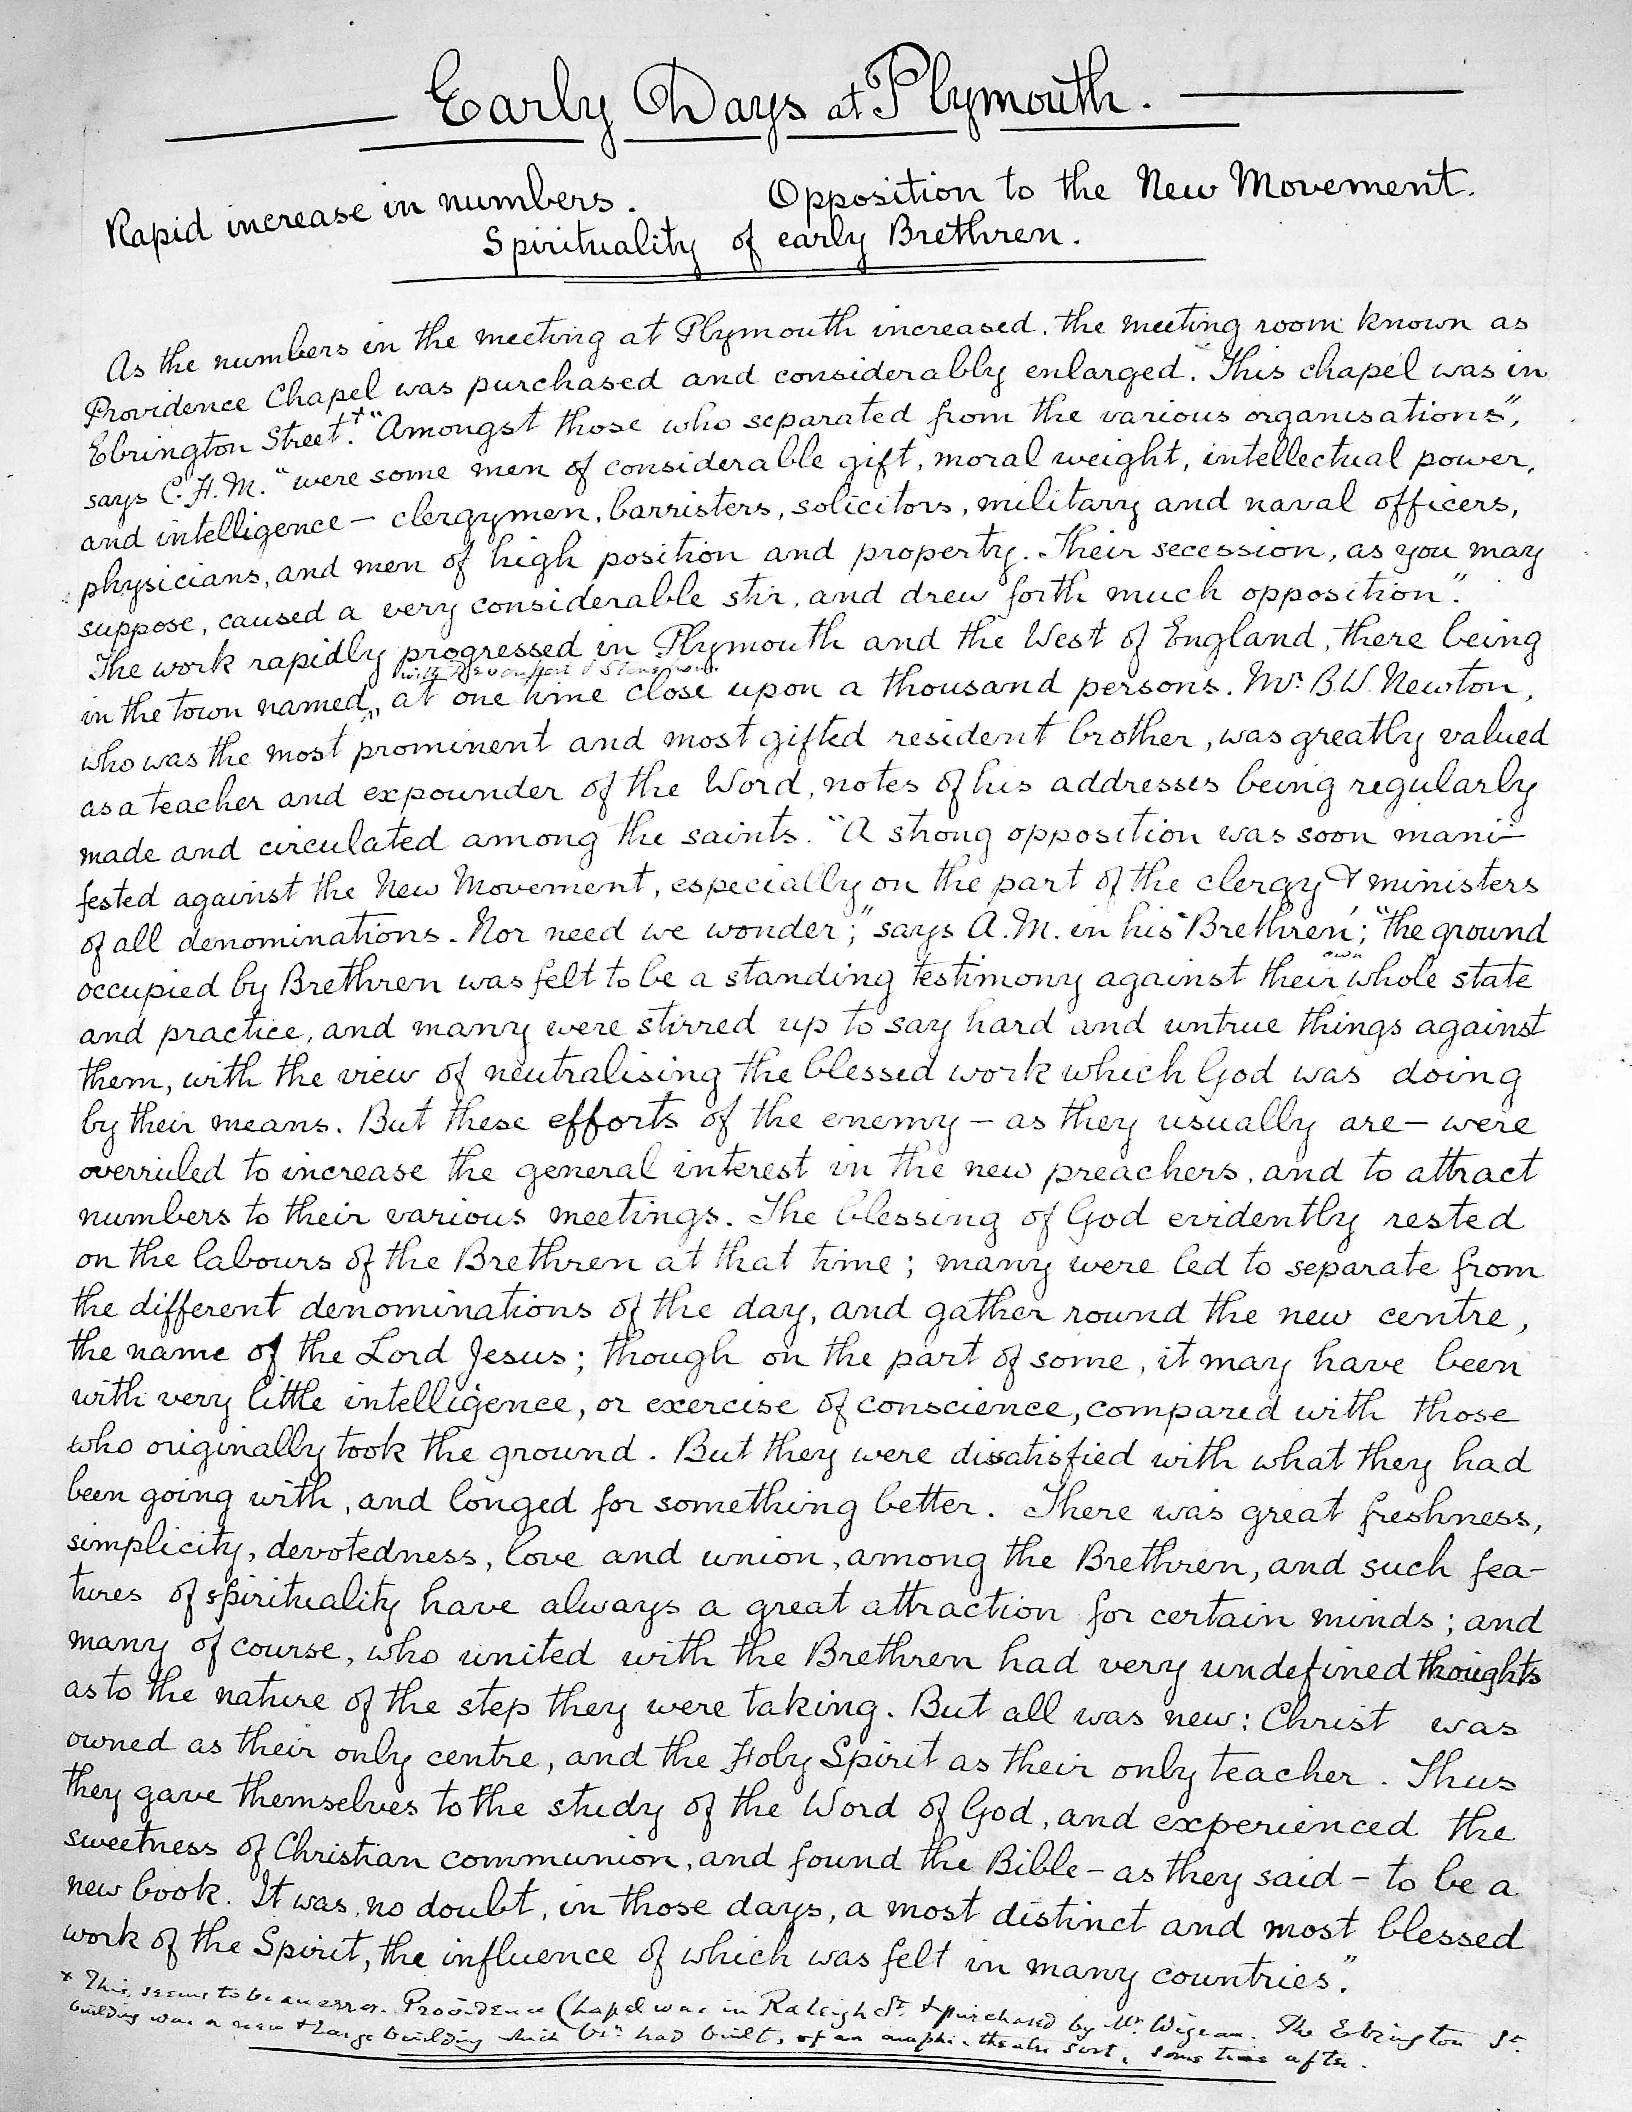 Early Days at Plymouth.
Rapid increase in numbers. Opposition to the New Movement.
Spirituality of early Brethren.
As the numbers in the meeting at Plymouth increased, the meeting room known as
Providence Chapel was purchased and considerably enlarged. This chapel was in
Ebrington Street.+ "Amongst those who separated from the various organisations",
says C.H.M. "were some men of considerable gift, moral weight, intellectual power,
and intelligence — clergymen, barristers, solicitors, military and naval officers,
physicians, and men of high position and property. Their secession, as you may
suppose, caused a very considerable stir, and drew forth much opposition".
The work rapidly progressed in Plymouth and the West of England, there being
with Devonport & Stonehouse
in the town named, at one time close upon a thousand persons. Mr. B.W. Newton,
who was the most prominent and most gifted resident brother, was greatly valued
as a teacher and expounder of the Word, notes of his addresses being regularly
made and circulated among the saints. "A strong opposition was soon mani-
fested against the New Movement, especially on the part of the clergy & ministers
of all denominations. Nor need we wonder;" says A.M. in his 'Brethren'; "the ground
own
occupied by Brethren was felt to be a standing testimony against their whole state
and practice, and many were stirred up to say hard and untrue things against
them, with the view of neutralising the blessed work which God was doing
by their means. But these efforts of the enemy — as they usually are — were
overruled to increase the general interest in the new preachers, and to attract
numbers to their various meetings. The blessing of God evidently rested
on the labours of the Brethren at that time; many were led to separate from
the different denominations of the day, and gather round the new centre,
the name of the Lord Jesus; though on the part of some, it may have been
with very little intelligence, or exercise of conscience, compared with those
who originally took the ground. But they were dissatisfied with what they had
been going with, and longed for something better. There was great freshness,
simplicity, devotedness, love and union, among the Brethren, and such fea-
tures of spirituality have always a great attraction for certain minds; and
many of course, who united with the Brethren had very undefined thoughts
as to the nature of the step they were taking. But all was new: Christ was
owned as their only centre, and the Holy Spirit as their only teacher. Thus
they gave themselves to the study of the Word of God, and experienced the
sweetness of Christian communion, and found the Bible — as they said — to be a
new book. It was, no doubt, in those days, a most distinct and most blessed
work of the Spirit, the influence of which was felt in many countries".
x This seems to be an error. Providence Chapel was in Raleigh St. & purchased by Mr. Wigram. The Ebrington St.
building was a new & large building which Brn had built, of an amphi-theatre sort, some time after.